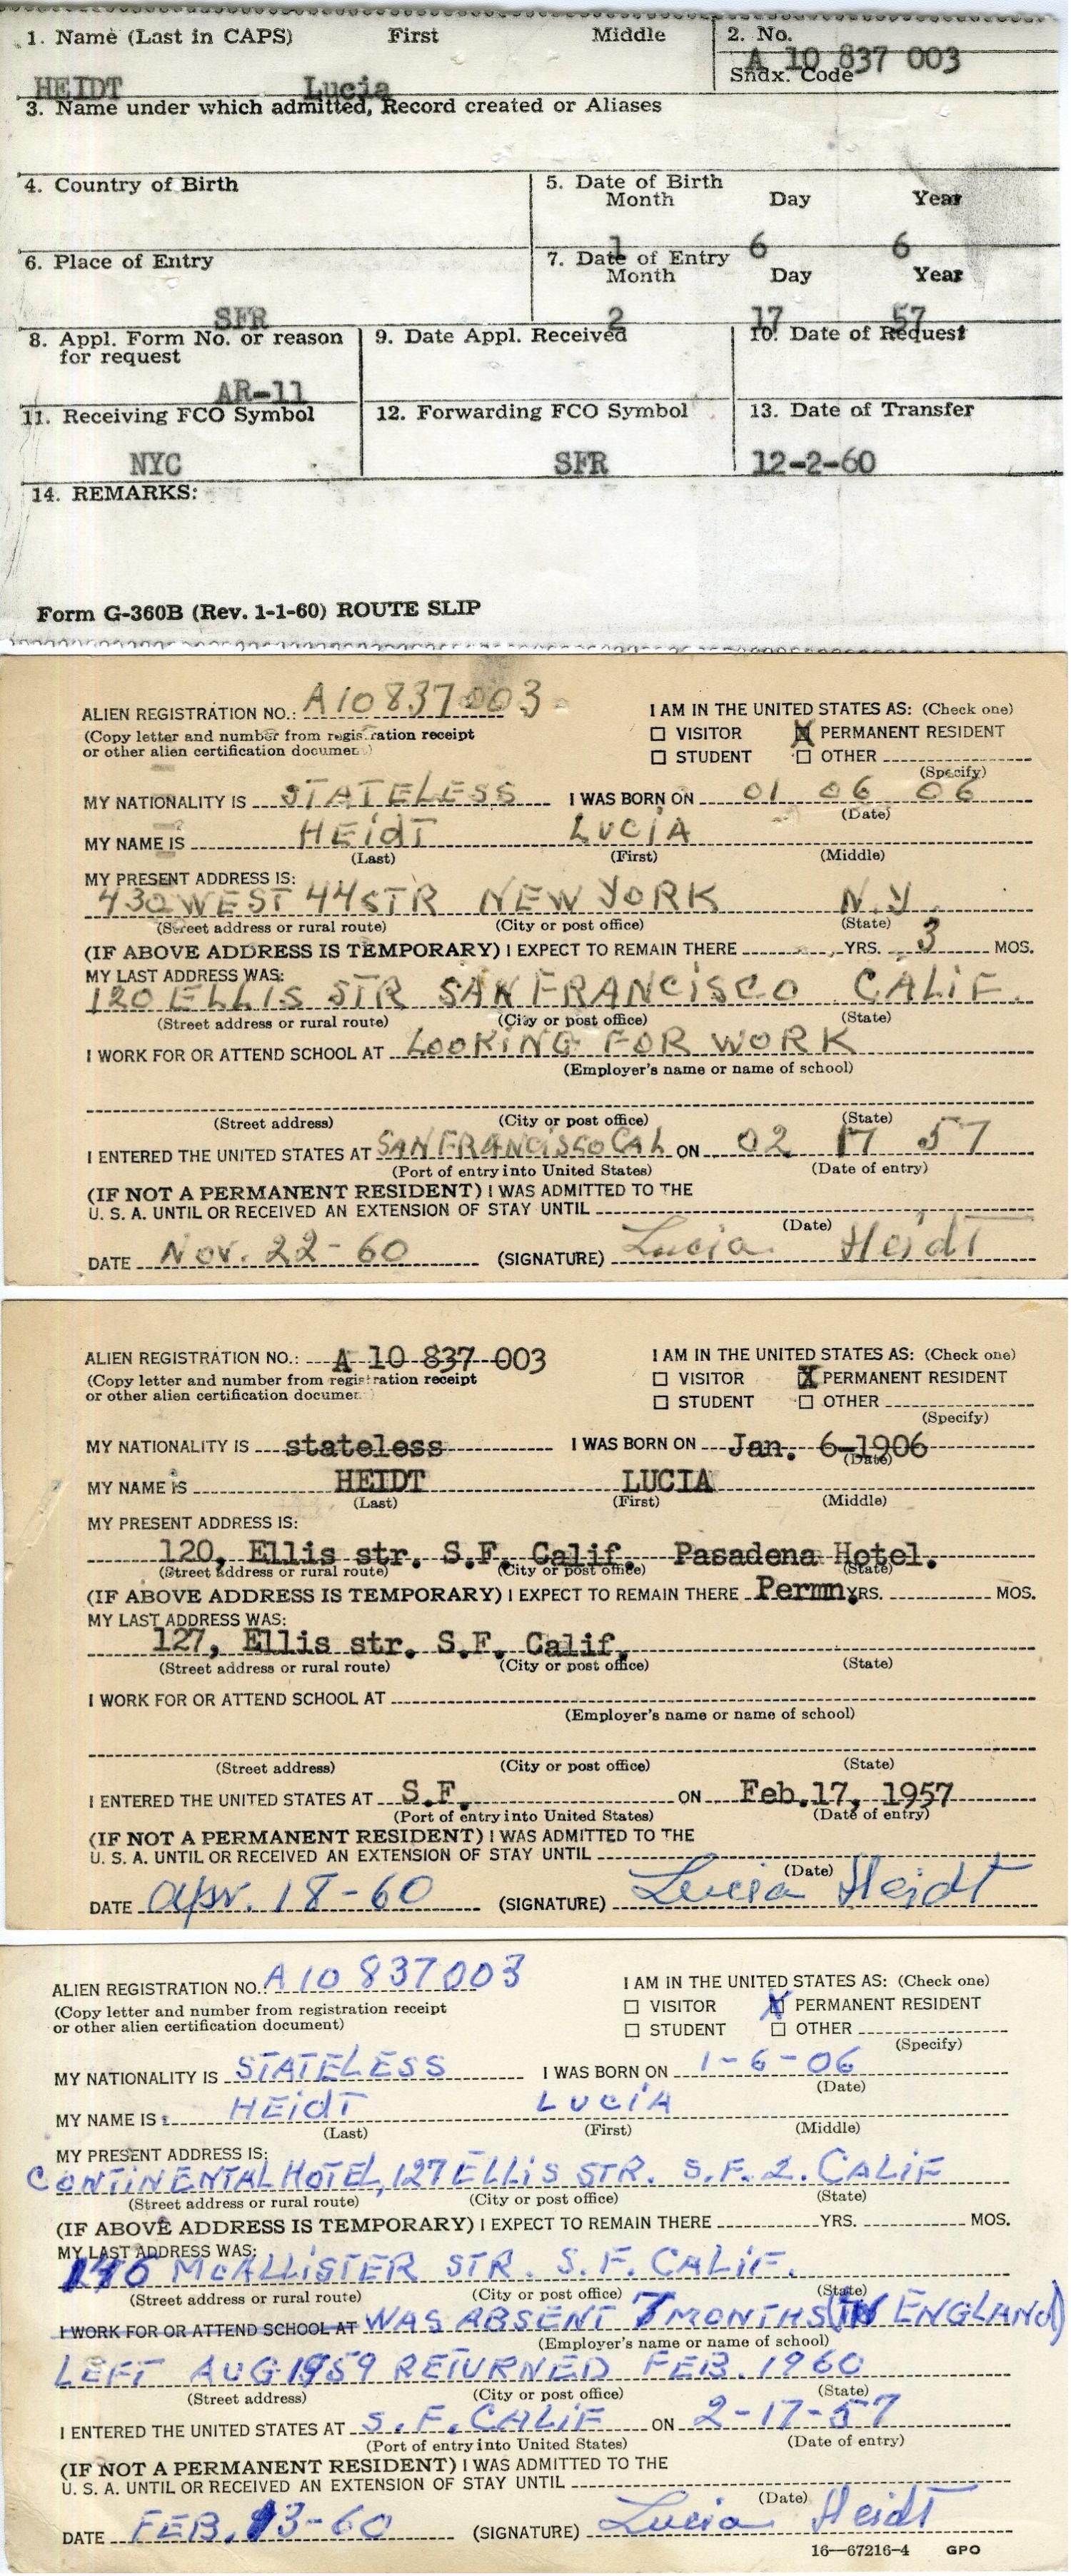 1. Name (Last in CAPS) First Middle
2. No.
A 10 837 003
Sndx. Code
HEIDT Lucia
3. Name under which admitted, Record created or Aliases
4. Country of Birth
5. Date of Birth
Month Day Year
1 6 6
6. Place of Entry
7. Date of Entry
Month Day Year
SFR
2 17 57
8. Appl. Form No. or reason for request
9. Date Appl. Received
10. Date of Request
AR-11
11. Receiving FCO Symbol
12. Forwarding FCO Symbol
13. Date of Transfer
NYC SFR 12-2-60
14. REMARKS:
Form G-360B (Rev. 1-1-60) ROUTE SLIP
ALIEN REGISTRATION NO.: A10837003
I AM IN THE UNITED STATES AS: (Check one)
(Copy letter and number from registration receipt
or other alien certification documen )
VISITOR X PERMANENT RESIDENT
STUDENT OTHER
(Specify)
MY NATIONALITY IS STATELESS I WAS BORN ON 01 06 06
(Date)
MY NAME IS HEIdT LUCiA
(Last) (First) (Middle)
MY PRESENT ADDRESS IS:
430 WEST 44 STR NEW YORK N.Y.
(Street address or rural route) (City or post office) (State)
(IF ABOVE ADDRESS IS TEMPORARY) I EXPECT TO REMAIN THERE YRS. 3 MOS.
MY LAST ADDRESS WAS:
120 ELLIS STR SAN FRANCISCO CALiF.
(Street address or rural route) (City or post office) (State)
I WORK FOR OR ATTEND SCHOOL AT LOOKING FOR WORK
(Employer's name or name of school)
(Street address) (City or post office) (State)
I ENTERED THE UNITED STATES AT SAN FRANCISCO CAL ON 02 17 57
(Port of entry into United States) (Date of entry)
(IF NOT A PERMANENT RESIDENT) I WAS ADMITTED TO THE
U. S. A. UNTIL OR RECEIVED AN EXTENSION OF STAY UNTIL
(Date)
DATE Nov. 22-60 (SIGNATURE) Lucia Heidt
ALIEN REGISTRATION NO.: A 10 837 003
I AM IN THE UNITED STATES AS: (Check one)
(Copy letter and number from registration receipt
or other alien certification documen )
VISITOR X PERMANENT RESIDENT
STUDENT OTHER
(Specify)
MY NATIONALITY IS stateless I WAS BORN ON Jan. 6-1906
(Date)
MY NAME IS HEIDT LUCIA
(Last) (First) (Middle)
MY PRESENT ADDRESS IS:
120, Ellis str. S.F. Calif. Pasadena Hotel.
(Street address or rural route) (City or post office) (State)
(IF ABOVE ADDRESS IS TEMPORARY) I EXPECT TO REMAIN THERE Permn. YRS. MOS.
MY LAST ADDRESS WAS:
127, Ellis str. S.F. Calif.
(Street address or rural route) (City or post office) (State)
I WORK FOR OR ATTEND SCHOOL AT
(Employer's name or name of school)
(Street address) (City or post office) (State)
I ENTERED THE UNITED STATES AT S.F. ON Feb.17, 1957
(Port of entry into United States) (Date of entry)
(IF NOT A PERMANENT RESIDENT) I WAS ADMITTED TO THE
U. S. A. UNTIL OR RECEIVED AN EXTENSION OF STAY UNTIL
(Date)
DATE apr. 18-60 (SIGNATURE) Lucia Heidt
ALIEN REGISTRATION NO. A10 837003
I AM IN THE UNITED STATES AS: (Check one)
(Copy letter and number from registration receipt
or other alien certification document)
VISITOR X PERMANENT RESIDENT
STUDENT OTHER
(Specify)
MY NATIONALITY IS STATELESS I WAS BORN ON 1-6-06
(Date)
MY NAME IS HEIdT LUCiA
(Last) (First) (Middle)
MY PRESENT ADDRESS IS:
CONTINENTAL HOTEL, 127 ELLIS STR. S.F. 2. CALiF
(Street address or rural route) (City or post office) (State)
(IF ABOVE ADDRESS IS TEMPORARY) I EXPECT TO REMAIN THERE YRS. MOS.
MY LAST ADDRESS WAS:
146 McALLiSTER STR. S.F. CALiF.
(Street address or rural route) (City or post office) (State)
I WORK FOR OR ATTEND SCHOOL AT WAS ABSENT 7 MONTHS (IN ENGLAND)
(Employer's name or name of school)
LEFT AUG 1959 RETURNED FEB. 1960
(Street address) (City or post office) (State)
I ENTERED THE UNITED STATES AT S.F. CALiF ON 2-17-57
(Port of entry into United States) (Date of entry)
(IF NOT A PERMANENT RESIDENT) I WAS ADMITTED TO THE
U. S. A. UNTIL OR RECEIVED AN EXTENSION OF STAY UNTIL
(Date)
DATE FEB. 13-60 (SIGNATURE) Lucia Heidt
16—67216-4 GPO